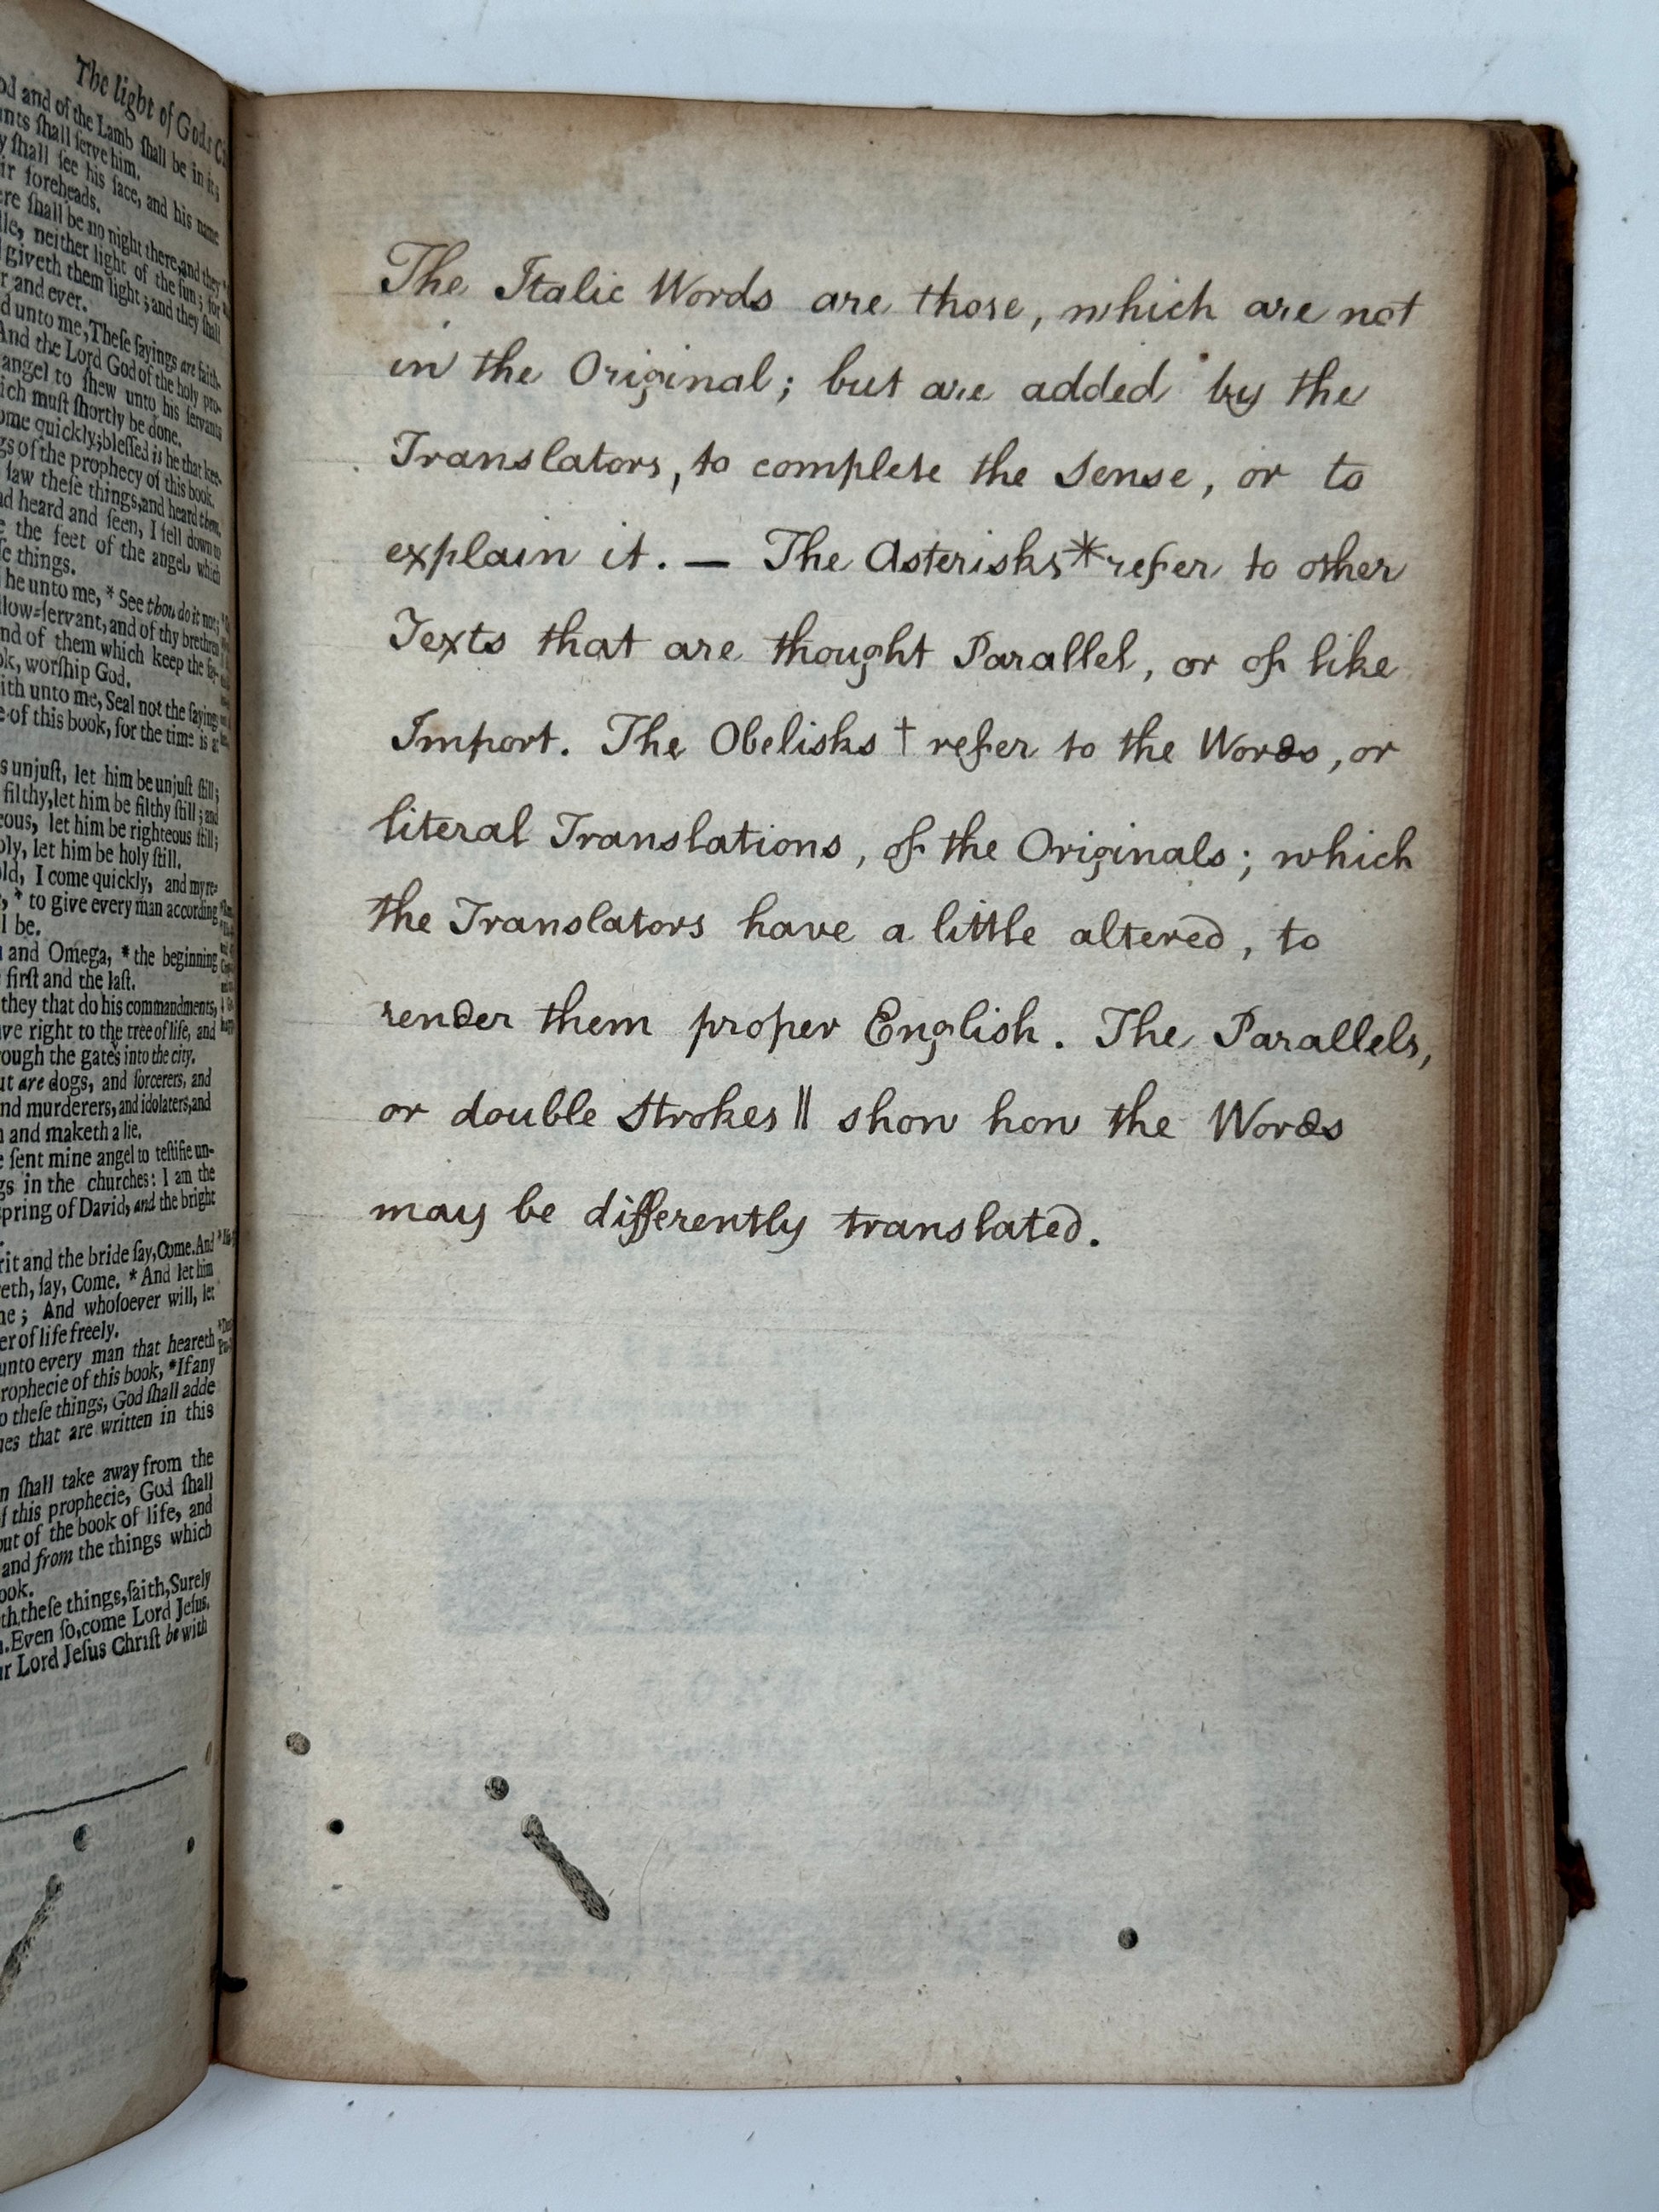 The light of Gods
od and of the Lamb ſhall be in it,
ants ſhall ſerve him.
y ſhall ſee his face, and his name
ir foreheads.
ere ſhall be no night there, and they
dle, neither light of the ſun; for
giveth them light; and they ſhall
r and ever.
d unto me, Theſe ſayings are faith-
And the Lord God of the holy pro-
angel to ſhew unto his ſervants
ich muſt ſhortly be done.
ome quickly; bleſſed is he that kee-
gs of the prophecy of this book.
ſaw theſe things, and heard them.
ad heard and ſeen, I fell down to
e the feet of the angel, which
ſe things.
he unto me, * See thou do it not;
llow-ſervant, and of thy brethren
nd of them which keep the ſay-
ok, worſhip God.
ith unto me, Seal not the ſayings
e of this book, for the time is at
s unjuſt, let him be unjuſt ſtill;
filthy, let him be filthy ſtill; and
eous, let him be righteous ſtill;
oly, let him be holy ſtill.
old, I come quickly, and my re-
, * to give every man according
l be.
and Omega, * the beginning
firſt and the laſt.
they that do his commandments,
ave right to the tree of life, and
rough the gates into the city.
ut are dogs, and ſorcerers, and
nd murderers, and idolaters, and
h and maketh a lie.
e ſent mine angel to teſtifie un-
gs in the churches: I am the
ſpring of David, and the bright
rit and the bride ſay, Come. And
reth, ſay, Come. * And let him
ne; And whoſoever will, let
er of life freely.
unto every man that heareth
rophecie of this book, * If any
o theſe things, God ſhall adde
ues that are written in this
n ſhall take away from the
f this prophecie, God ſhall
out of the book of life, and
and from the things which
ook.
th theſe things, ſaith, Surely
n. Even ſo, come Lord Jeſus.
ur Lord Jeſus Chriſt be with
The Italic Words are those, which are not
in the Original; but are added by the
Translators, to complete the Sense, or to
explain it. — The Asterisks * refer to other
Texts that are thought Parallel, or of like
Import. The Obelisks † refer to the Words, or
literal Translations, of the Originals; which
the Translators have a little altered, to
render them proper English. The Parallels,
or double Strokes || show how the Words
may be differently translated.